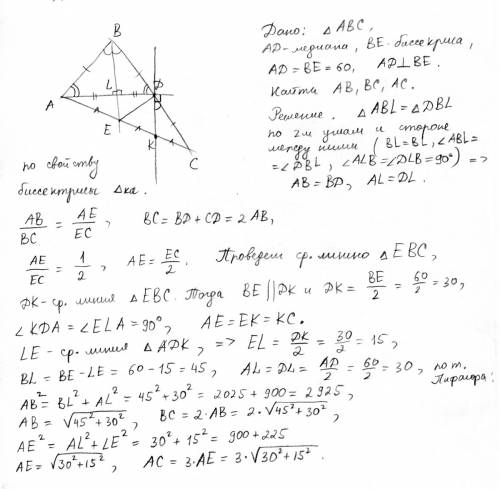 B
A
L
D
E
K
C
Дано: △ABC,
AD-медиана, BE-биссектриса,
AD=BE=60, AD⊥BE.
Найти AB, BC, AC.
Решение. △ABL=△DBL
по 2м углам и стороне
между ними (BL=BL, ∠ABL=
=∠DBL, ∠ALB=∠DLB=90°) =>
AB=BD, AL=DL.
по свойству
биссектрисы △ка.
AB/BC = AE/EC, BC=BD+CD=2AB,
AE/EC = 1/2, AE=EC/2. Проведем ср. линию △EBC,
DK-ср. линия △EBC. Тогда BE||DK и DK=BE/2=60/2=30,
∠KDA=∠ELA=90°, AE=EK=KC.
LE-ср. линия △ADK, => EL=DK/2=30/2=15,
BL=BE-LE=60-15=45, AL=DL=AD/2=60/2=30, по т.
Пифагора:
AB²=BL²+AL²=45²+30²=2025+900=2925,
AB=√45²+30², BC=2·AB=2·√45²+30²,
AE²=AL²+LE²=30²+15²=900+225
AE=√30²+15², AC=3·AE=3·√30²+15².